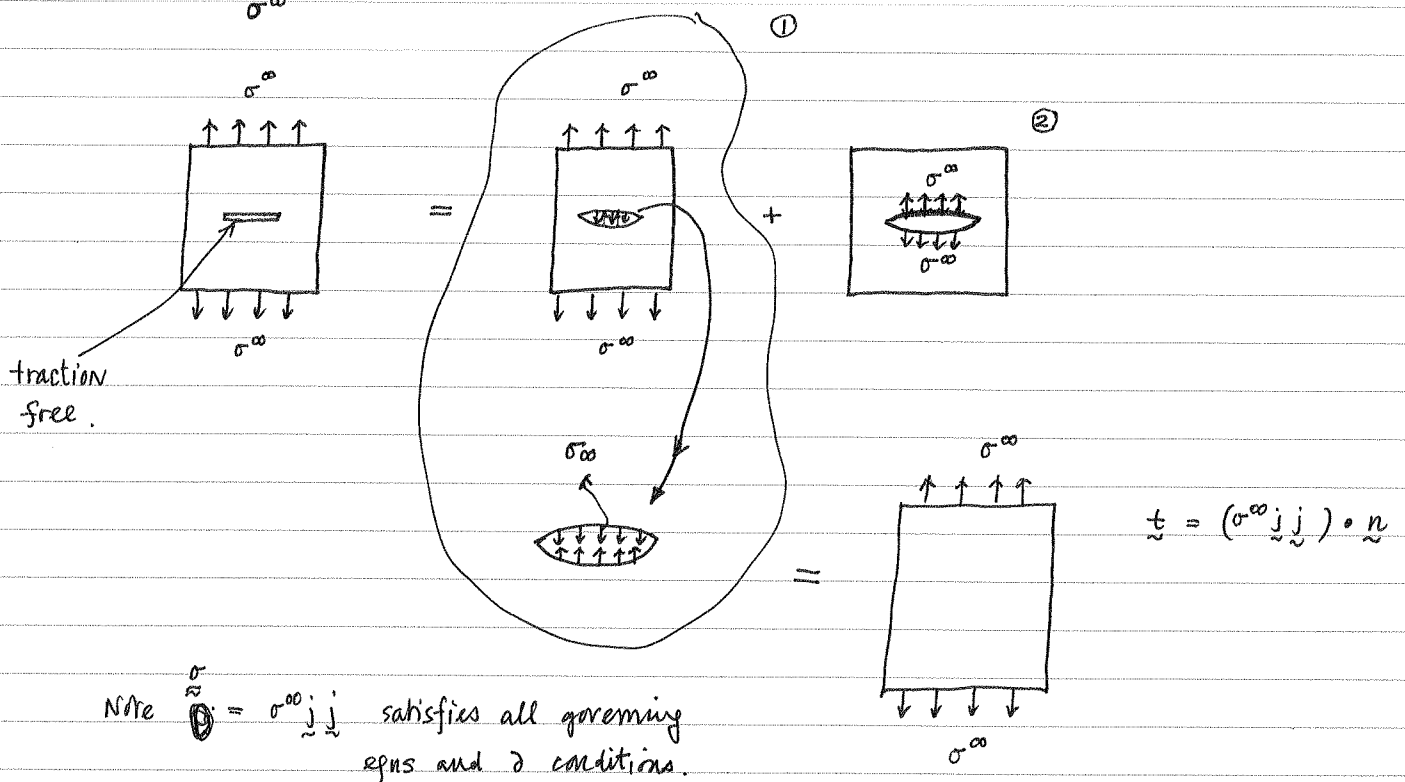 σ^∞
①
σ^∞
σ^∞
②
σ^∞
=
+
σ^∞
σ^∞
σ^∞
traction
free.
σ∞
σ^∞
t = (σ^∞ j j) • n
=
σ
Note = σ^∞ j j satisfies all governing
eqns and ∂ conditions.
σ^∞